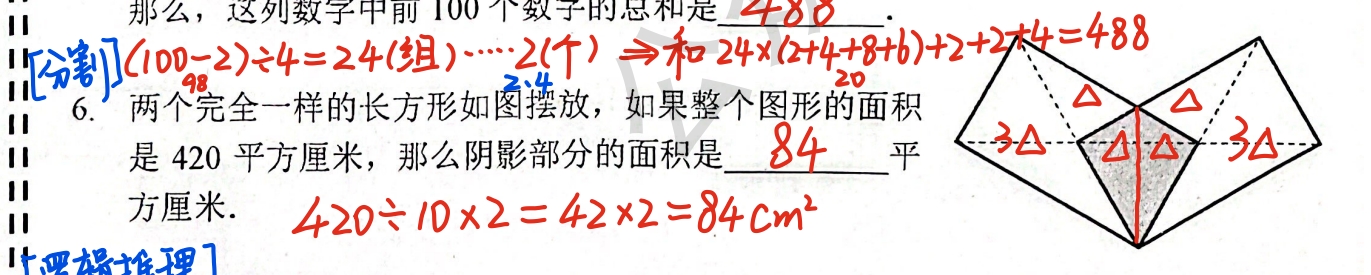 那么，这列数字中前 100 个数字的总和是 488 .
[分割] (100-2)÷4=24(组)……2(个) ⇒和 24×(2+4+8+6)+2+2+4=488
98 2、4 20
6. 两个完全一样的长方形如图摆放，如果整个图形的面积
是 420 平方厘米，那么阴影部分的面积是 84 平
方厘米．
420÷10×2=42×2=84cm²
△ △
3△ △ △ 3△
[逻辑推理]